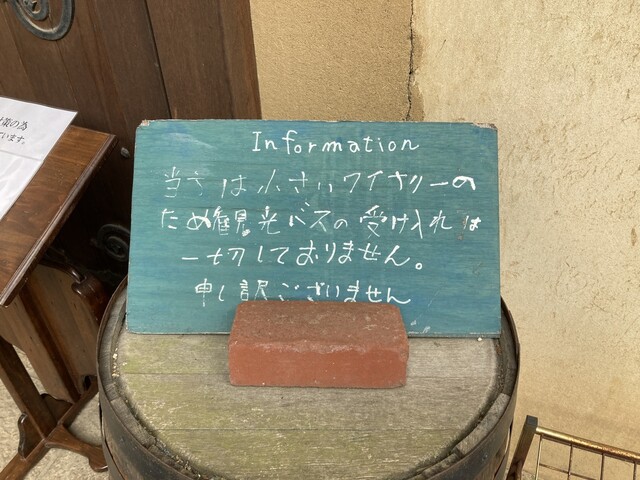 Information
当方は小さいワイナリーの
ため観光バスの受け入れは
一切しておりません。
申し訳ございません
策の為
ています。